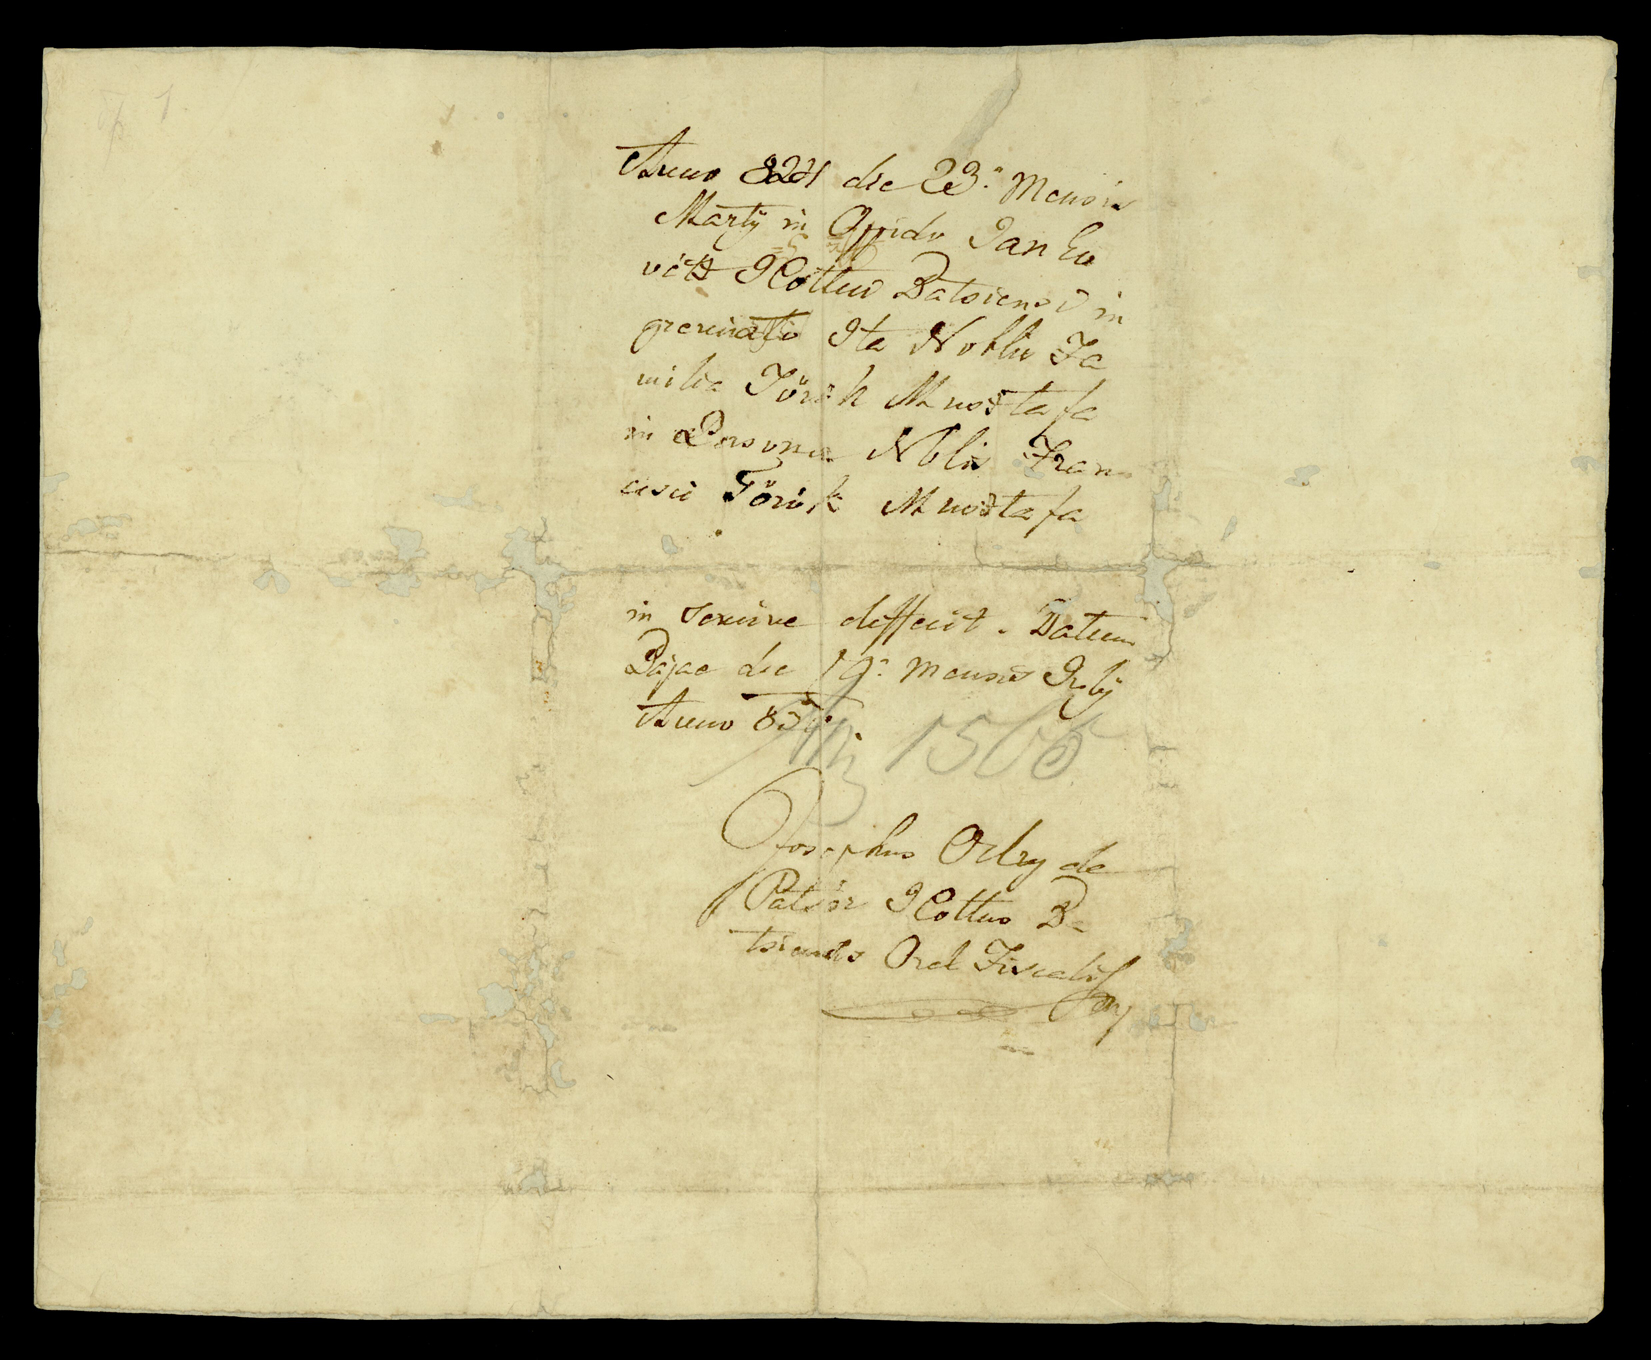 Anno 821 die 23.a Mensis
Martÿ in Oppido Jan Ko
vátz I Cottui Batsiensi in
gremiato Ita Noblis Fa
milia Török Musztafa
in Persona Nblis Fran
cisci Török Musztafa
in Sexu deffecit. Datum
Bajae die 19.a Mensis July
Anno
1565
Josephus Odry de
Patsér I Cottus Ba
tsiensis Ord Fiscalis